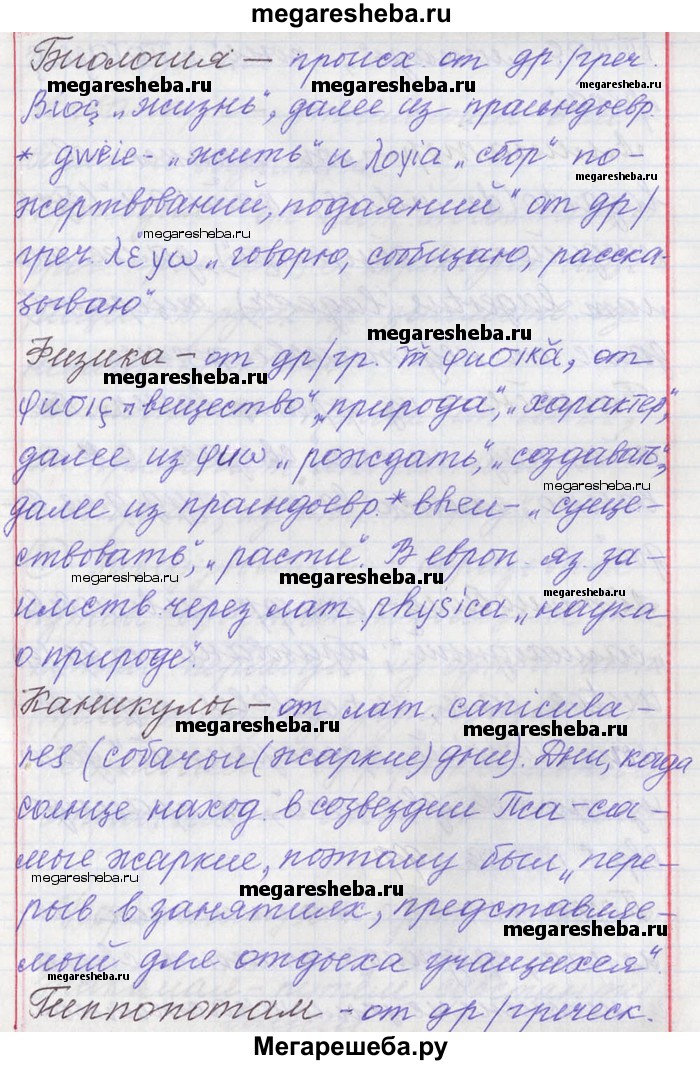 megaresheba.ru
Биология – происх от др/греч.
megaresheba.ru megaresheba.ru megaresheba.ru
βιος „жизнь“, далее из праиндоевр.
* gweie- „жить“ и λογια „сбор“ по-
megaresheba.ru
жертвований, подаяний“ от др/
megaresheba.ru
греч. λέγω „говорю, сообщаю, расска-
megaresheba.ru
зываю“
megaresheba.ru
Физика – от др/гр. φυσικă, от
megaresheba.ru
φυσις „вещество“, „природа“, „характер“,
далее из φυω „рождать“, „создавать“,
megaresheba.ru
далее из праиндоевр. * bheu- „суще-
ствовать“, „расти“. В европ. яз. за-
megaresheba.ru megaresheba.ru megaresheba.ru
имств. через лат. physica „наука
о природе“.
Каникулы – от лат. canicula-
megaresheba.ru megaresheba.ru
res (собачьи (жаркие) дни). Дни, когда
солнце наход. в созвездии Пса – са-
мые жаркие, поэтому был „пере-
megaresheba.ru megaresheba.ru
рыв в занятиях, представляе-
megaresheba.ru
мый для отдыха учащихся“.
megaresheba.ru
Гиппопотам – от др/греческ.
Мегарешеба.ру